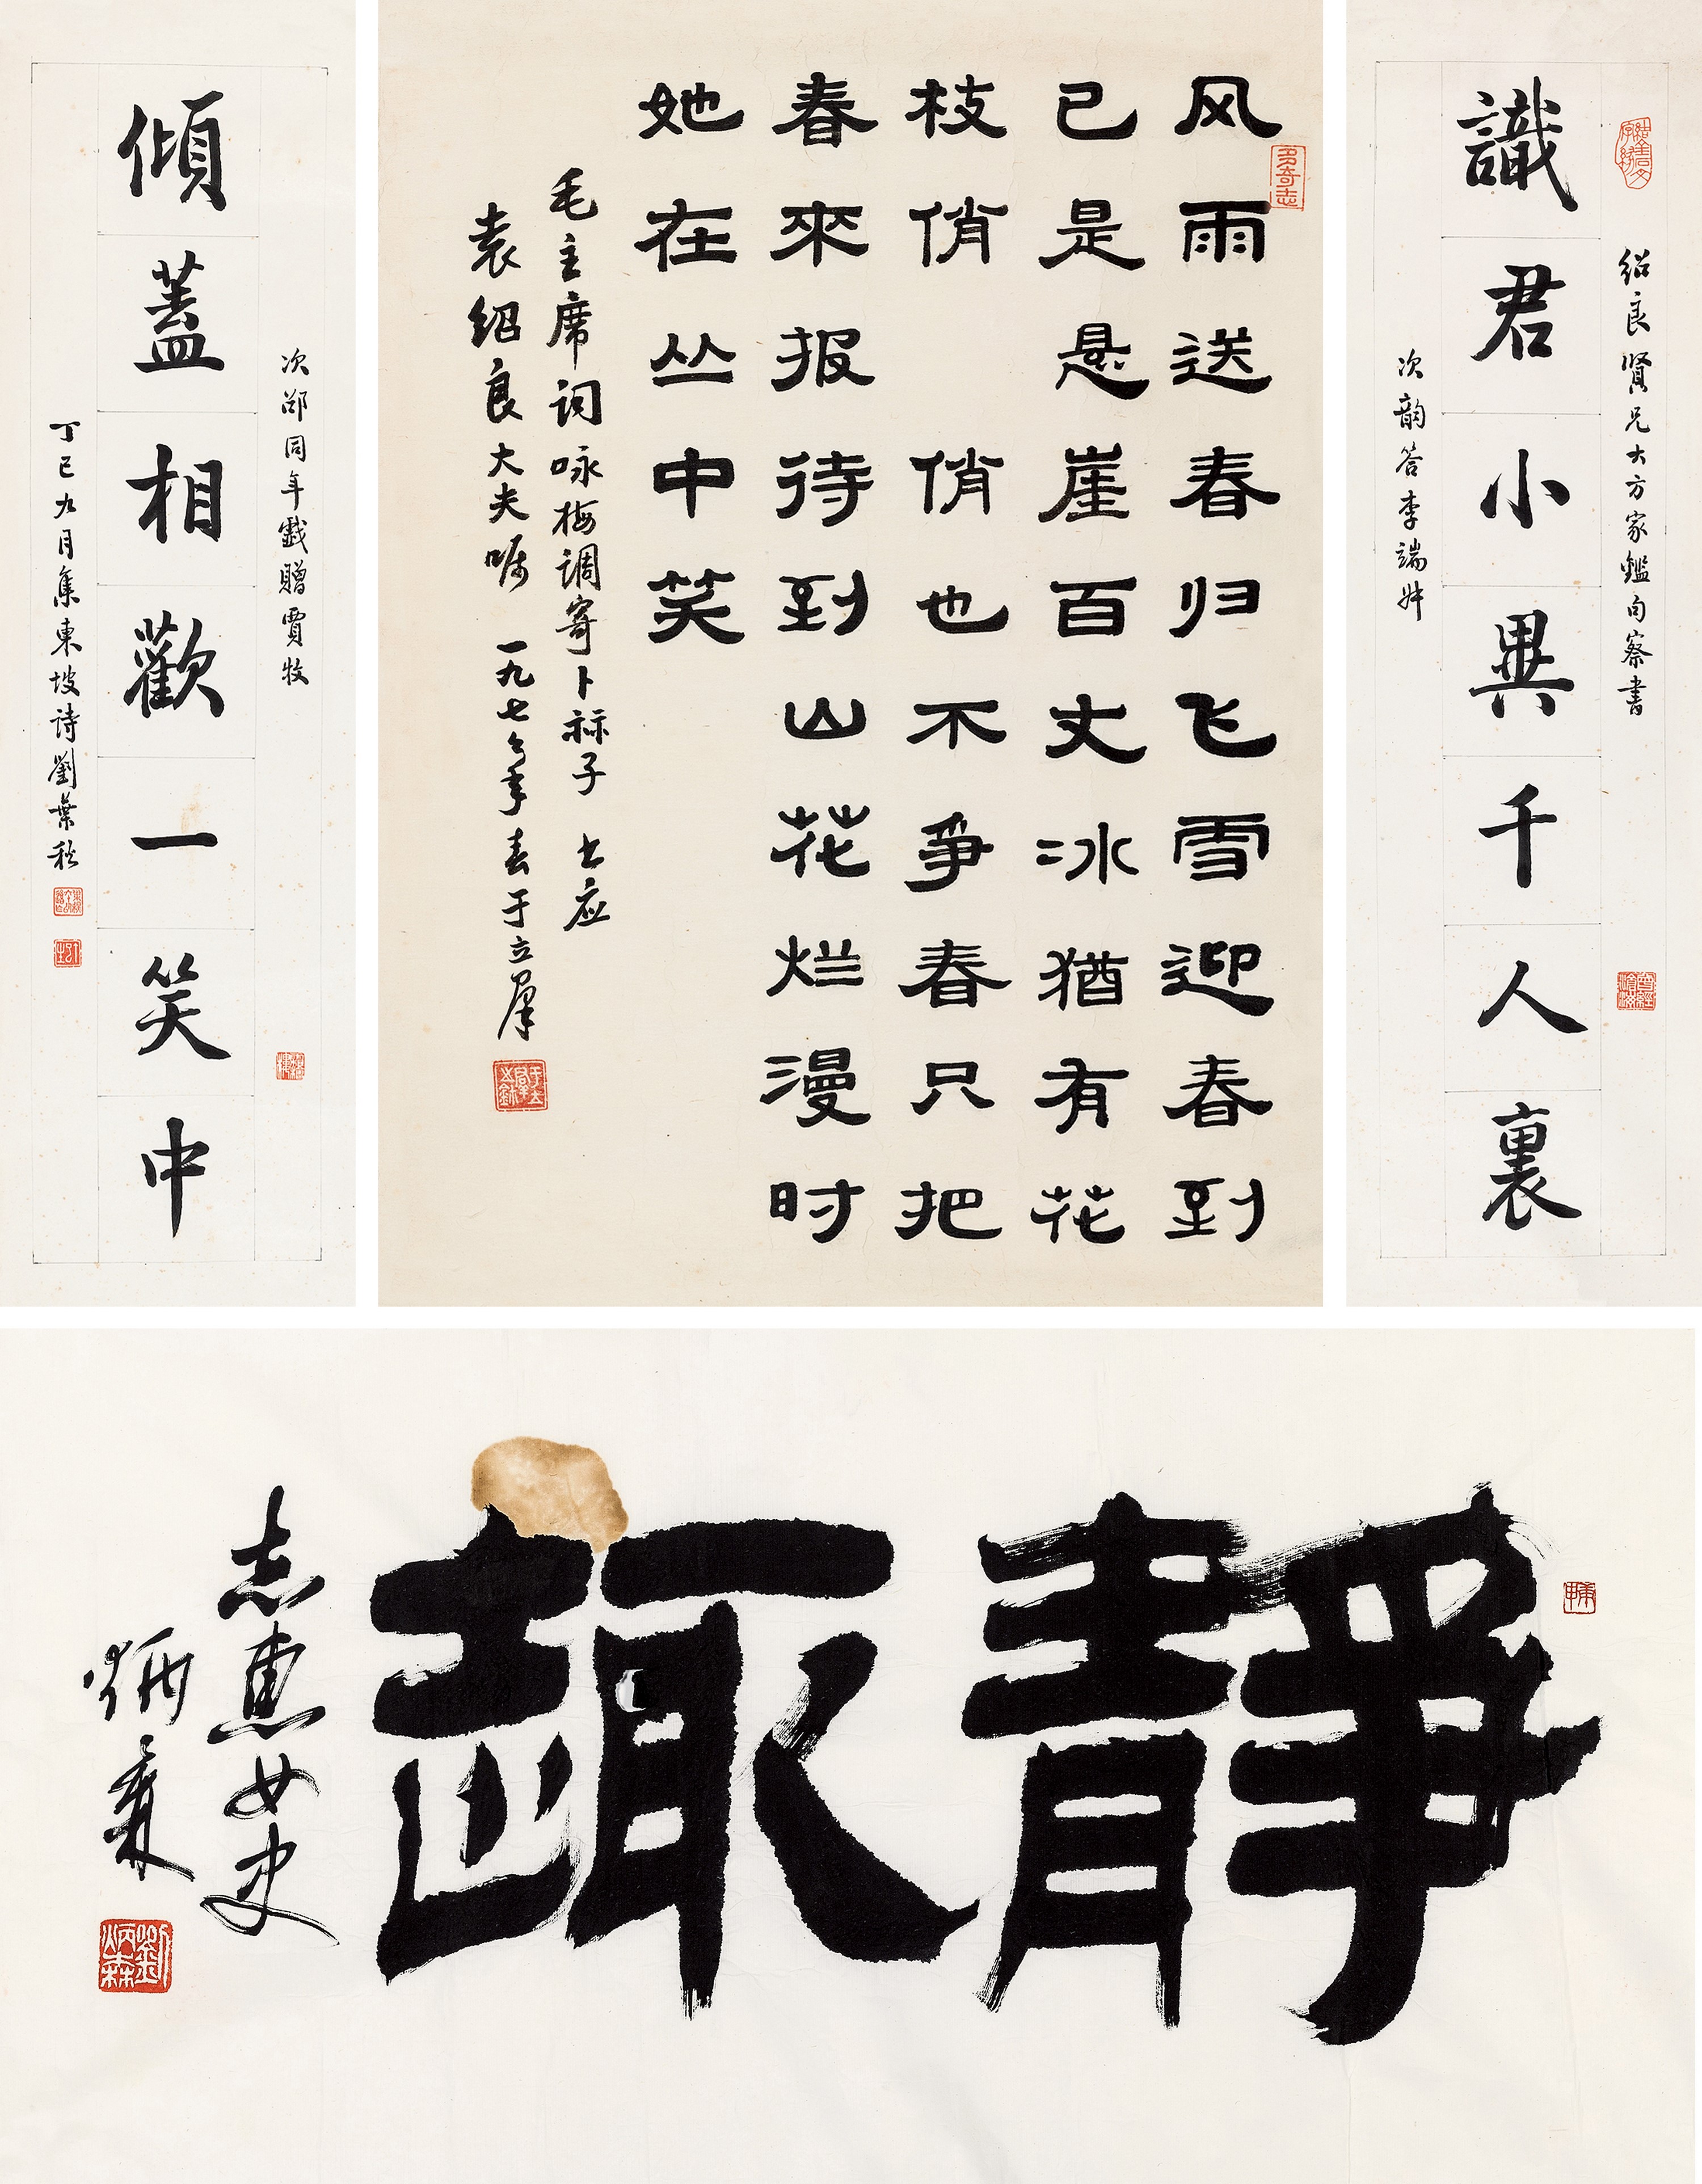 绍良賢兄大方家鑑句察書
識君小異千人裏
次韵答李端叔
风雨送春归飞雪迎春到
已是悬崖百丈冰犹有花
枝俏 俏也不爭春只把
春來报待到山花烂漫时
她在丛中笑
毛主席词咏梅调寄卜祘子 书应
袁绍良大夫嘱 一九七七年春于立群
次邵同年戲贈賈收
傾蓋相歡一笑中
丁巳九月集東坡诗劉葉秋
靜趣
志惠女史
炳森